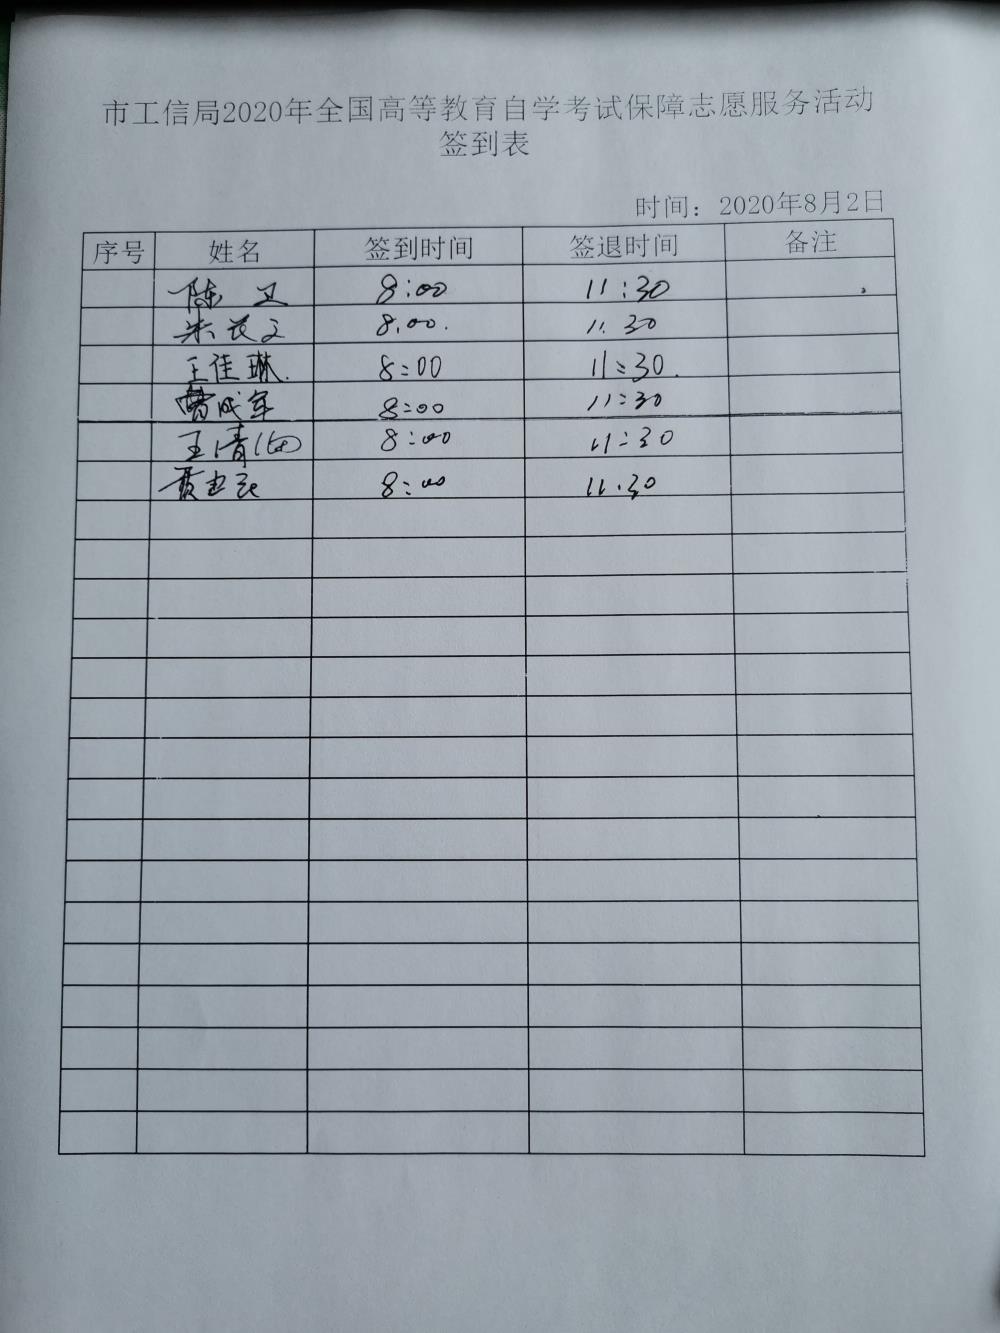 市工信局2020年全国高等教育自学考试保障志愿服务活动
签到表
时间：2020年8月2日
序号 姓名 签到时间 签退时间 备注
陈 8:00 11:30
朱 8.00. 11.30
王佳琳. 8:00 11:30.
曹成军 8:00 11:30
王清 8:00 11:30
8:00 11.30